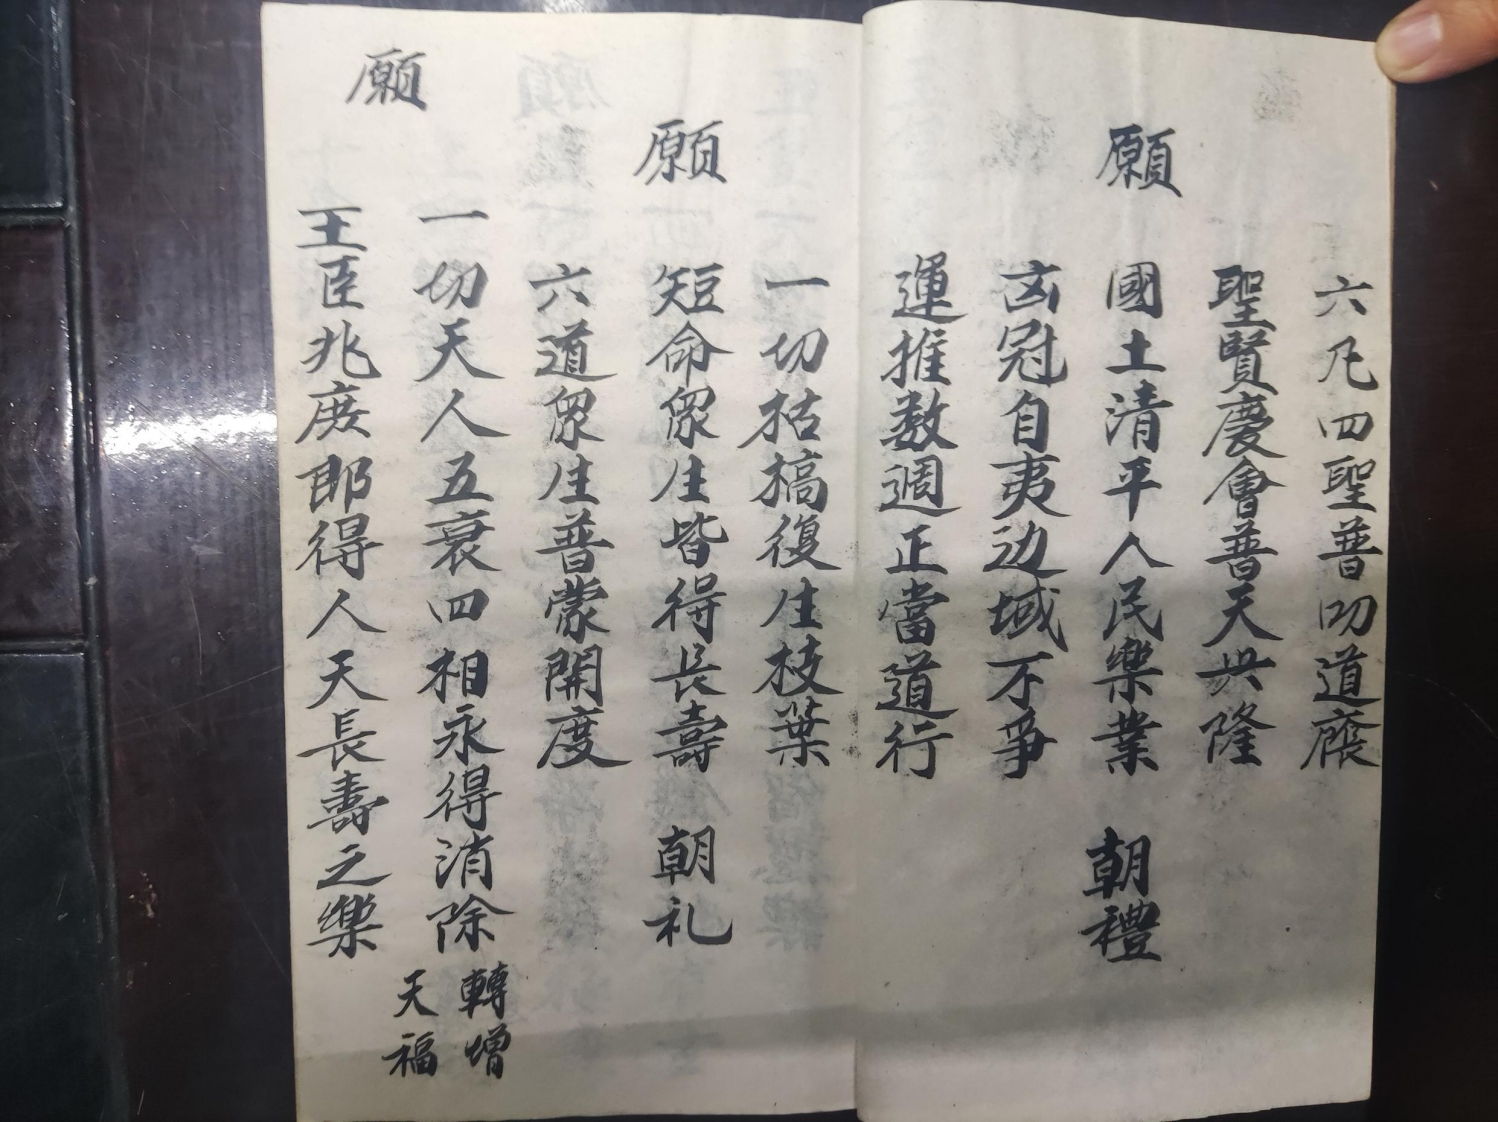 六凡四聖普叨道廕
聖賢慶會普天共隆
願
國土清平人民樂業 朝禮
凶冠自夷边域不爭
運推数週正當道行
一切枯槁復生枝葉
願
短命眾生皆得長壽 朝礼
六道眾生普蒙開度
願
一切天人五衰四相永得消除 轉增天福
王臣兆庶即得人天長壽之樂